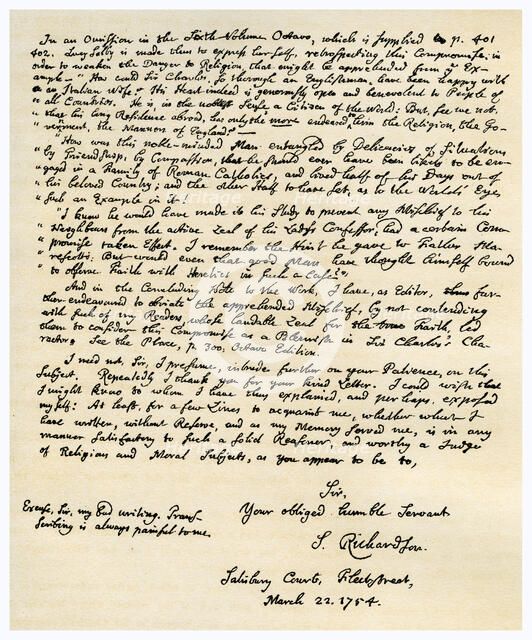 In an Omission in the Sixth Volume Octavo, which is supplied p. 401
402. Lucy Selby is made thus to express herself, retrospecting this Compromise; in
order to weaken the Danger to Religion, that might be apprehended from ye Ex-
ample — "How could Sir Charles, so thorough an Englishman, have been happy with
" an Italian Wife? His Heart indeed is generously open and benevolent to People of
" all Countries. He is, in the noblest Sense a Citizen of the World: But, see we not,
" that his long Residence abroad, has only the more endeared to him the Religion, the Go-
" vernment, the Manners of England? —
" How was this noble-minded Man entangled by Delicacies of Situation,
" by Friendship, by Compassion, that he should ever have been likely to be en-
" gaged in a Family of Roman Catholics, and lived half of his Days out of
" his beloved Country; and the other Half to have set, as to the World's Eye,
" such an Example in it.
" I know he would have made it his Study to prevent any Mischief to his
" Neighbours from the active Zeal of his Lady's Confessor, had a certain Com-
" promise taken Effect. I remember the Hint he gave to Father Ma-
" rescotti: But would even that good Man have thought himself bound
" to observe Faith with Heretics in such a Case?"
And in the Concluding Note to the Work, I have, as Editor, thus fur-
ther endeavoured to obviate the apprehended Mischief, by not contending
with such of my Readers, whose laudable Zeal for the true Faith, led
them to consider this Compromise as a Blemish in Sir Charles's Cha-
racter. See the Place, p. 300, Octavo Edition.
I need not, Sir, I presume, intrude further on your Patience, on this
Subject. Repeatedly I thank you for your kind Letter. I could wish that
I might know to whom I have thus explained, and perhaps, exposed
myself: At least, for a few Lines to acquaint me, whether what I
have written, without Reserve, and as my Memory served me, is in any
manner satisfactory to such a solid Reasoner, and worthy a Judge
of Religious and Moral Subjects, as you appear to be to,
Sir,
Your obliged humble Servant
S. Richardson.
Excuse, Sir, my bad writing. Trans-
scribing is always painful to me.
Salisbury Court, Fleetstreet,
March 22. 1754.